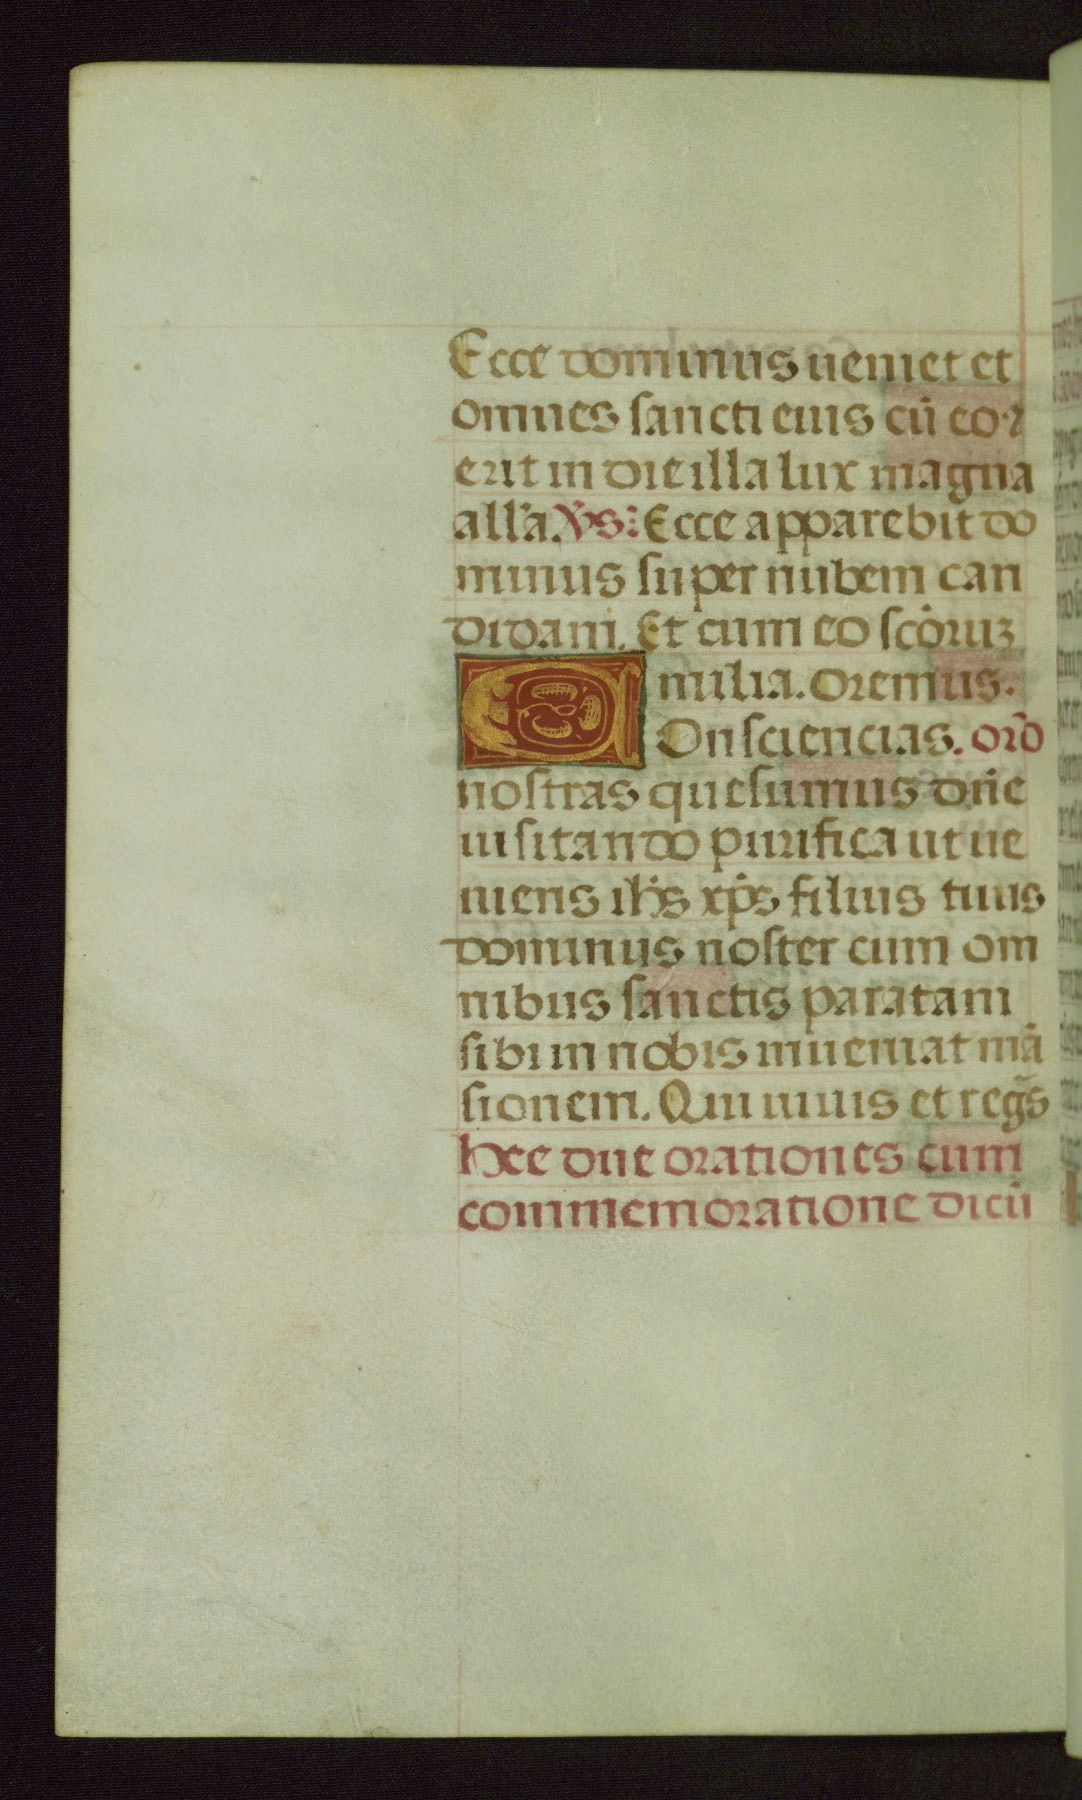 Ecce dominus ueniet et
omnes sancti eius cū eoꝝ
erit in die illa lux magna
all'a. V̄s: Ecce apparebit do
minus super nubem can
didam. Et cum eo sc̄oruꝫ
milia. Oremus.
COnsciencias. or̄o
nostras quesumus dn̄e
uisitando purifica ut ue
niens ih̄s xp̄s filius tuus
dominus noster cum om
nibus sanctis paratam
sibi in nobis inueniat mā
sionem. Qui uiuis et reḡs
Hee due orationes cum
commemoratione dicū